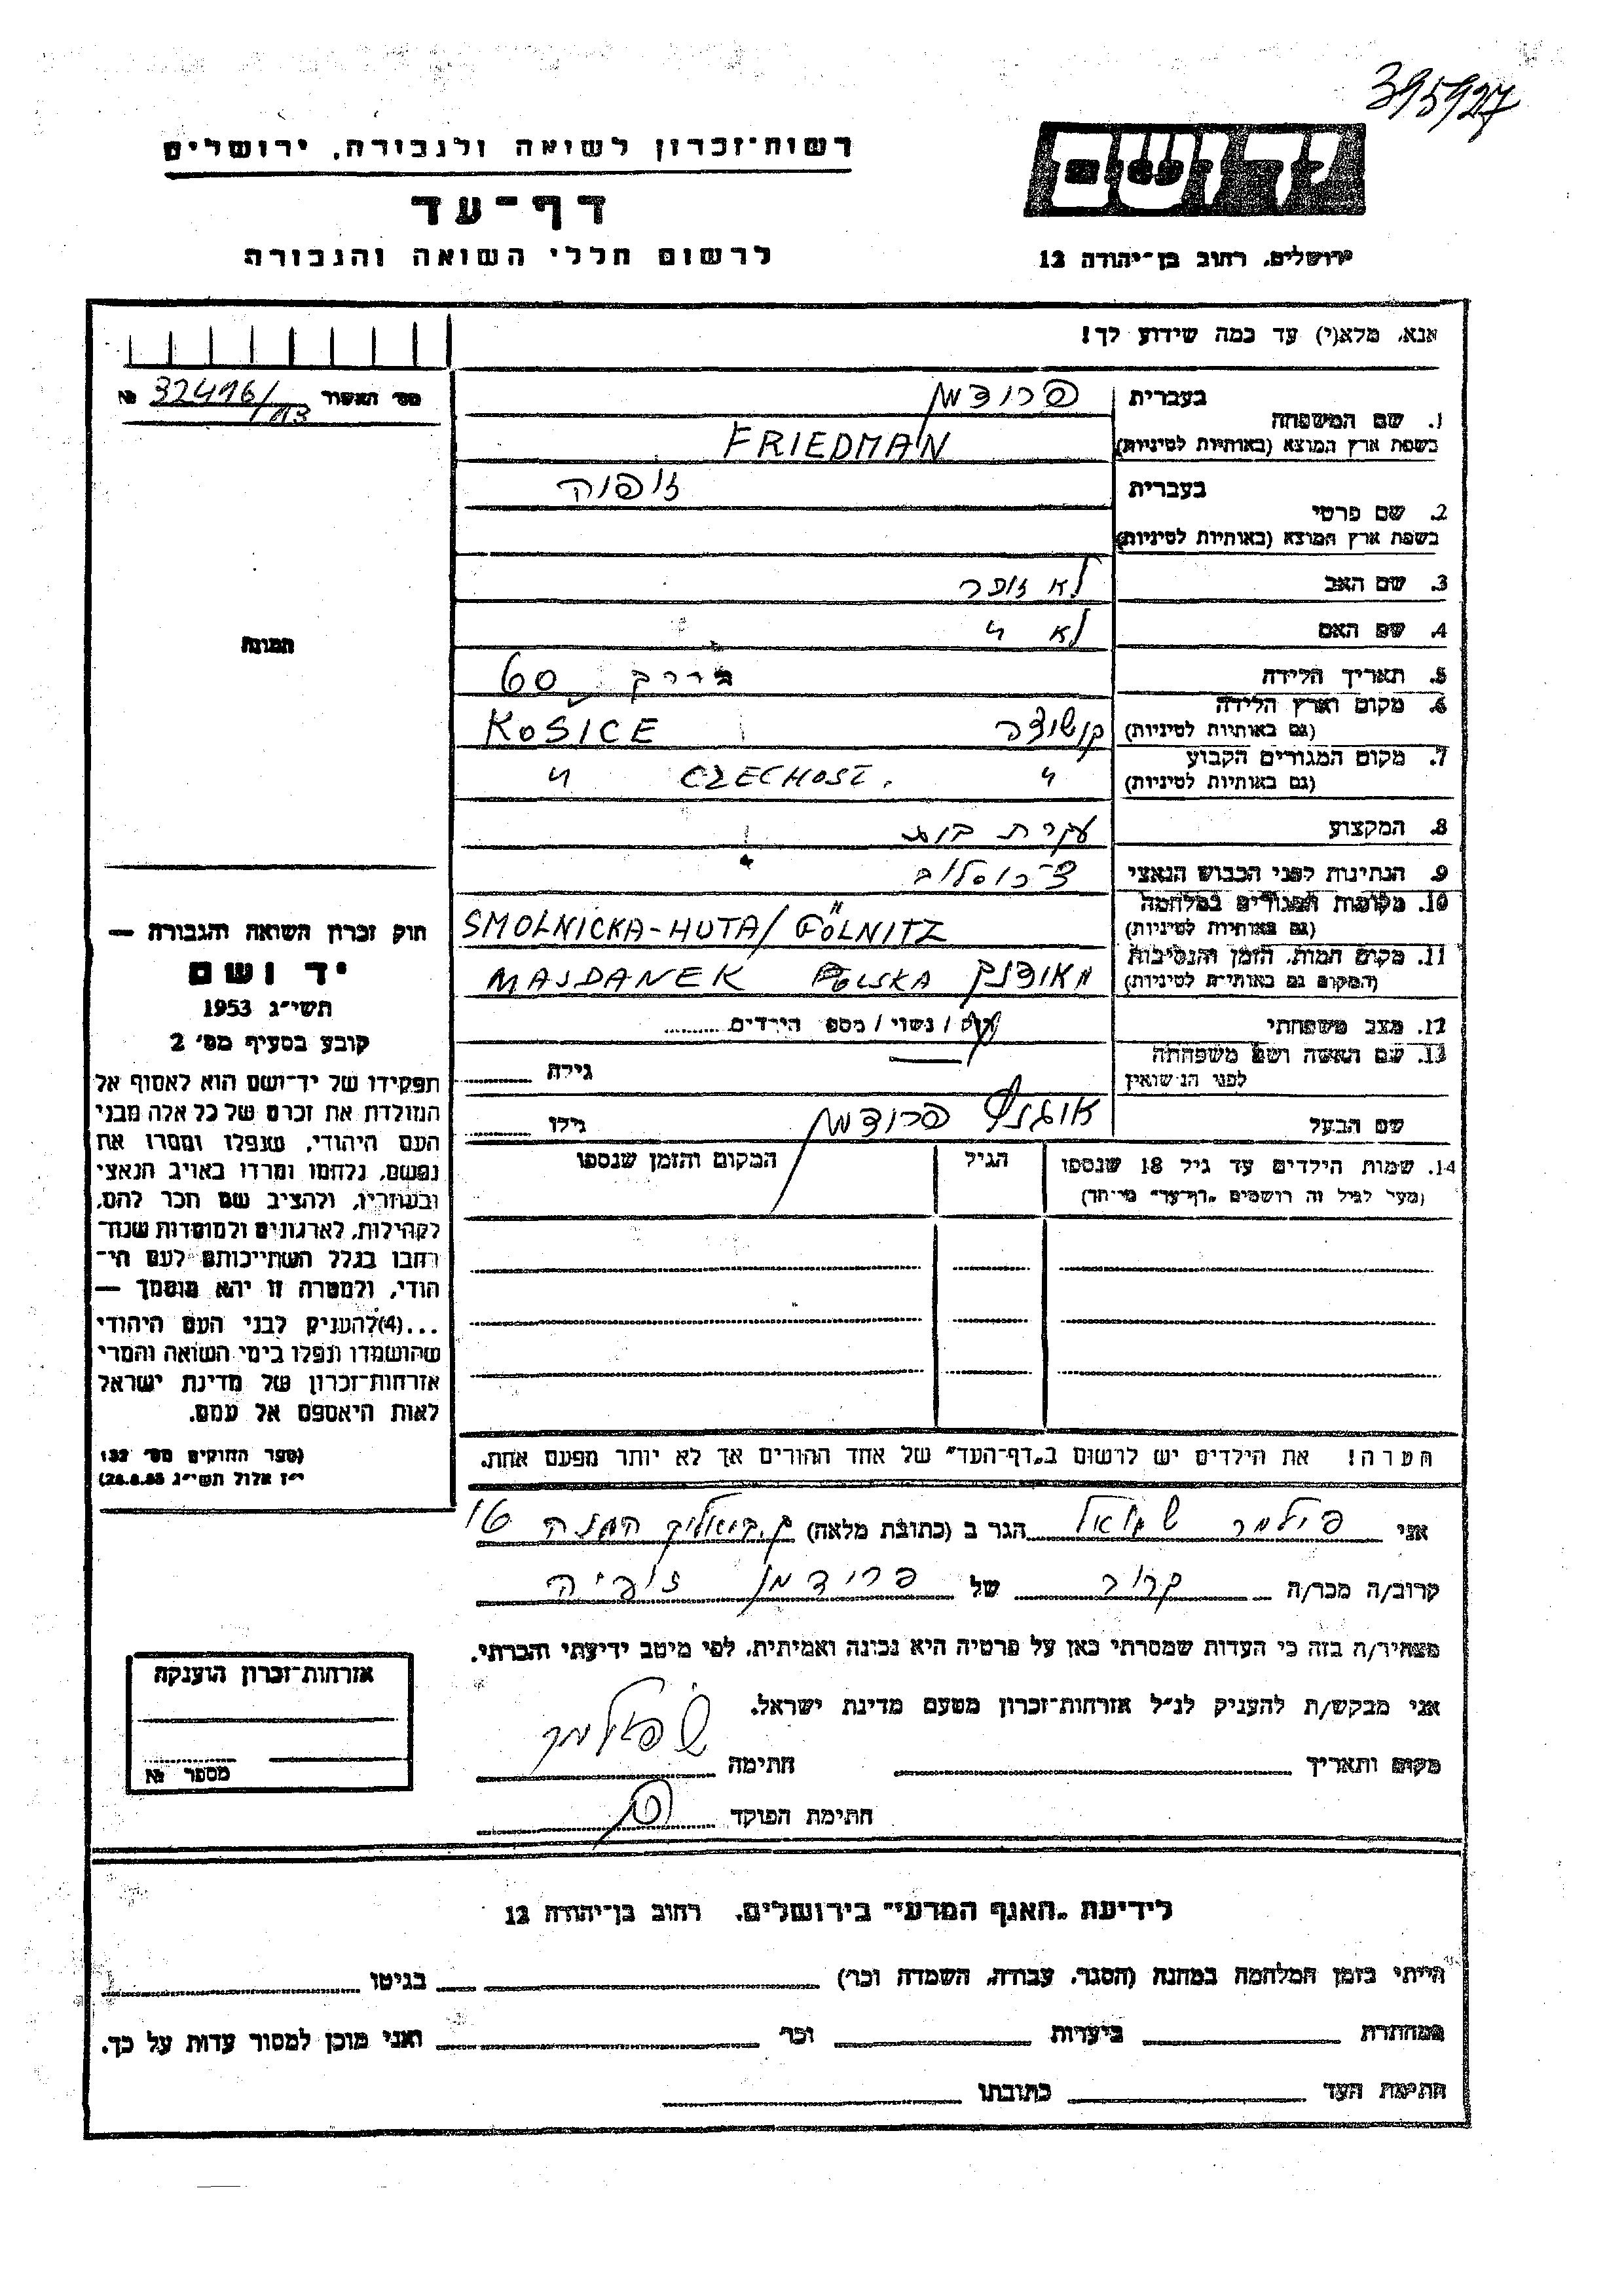 395927
יד ושם
רשות-זכרון לשואה ולגבורה, ירושלים
דף-עד
לרשום חללי השואה והגבורה
ירושלים, רחוב בן-יהודה 12
אנא, מלא(י) עד כמה שידוע לך!
מס׳ האשור 32416/ №
1. שם המשפחה
בעברית פרידמן
בשפת ארץ המוצא (באותיות לטיניות) FRIEDMAN
2. שם פרטי
בעברית זופיה
בשפת ארץ המוצא (באותיות לטיניות)
3. שם האב לא זוכר
4. שם האם לא "
5. תאריך הלידה בערך 60
6. מקום וארץ הלידה (גם באותיות לטיניות) קושיצה KOSICE
7. מקום המגורים הקבוע (גם באותיות לטיניות) " CZECHOSL. "
8. המקצוע עקרת בית
9. הנתינות לפני הכבוש הנאצי צ׳כוסלוב
10. מקומות המגורים במלחמה (גם באותיות לטיניות) SMOLNICKA-HUTA/GÖLNITZ
11. מקום המות, הזמן והנסיבות (המקום גם באותיות לטיניות) מאידנק POLSKA MAJDANEK
12. מצב משפחתי רווק / נשוי / מספר הילדים
13. שם האשה ושם משפחתה לפני הנישואין גילה
שם הבעל פרידמן גילו
14. שמות הילדים עד גיל 18 שנספו הגיל המקום והזמן שנספו
(מעל לגיל זה רושמים „דף-עד" מיוחד)
תמונה
חוק זכרון השואה והגבורה —
יד ושם
תשי״ג 1953
קובע בסעיף מס׳ 2
תפקידו של יד-ושם הוא לאסוף אל
המולדת את זכרם של כל אלה מבני
העם היהודי, שנפלו ומסרו את
נפשם, נלחמו ומרדו באויב הנאצי
ובעוזריו, ולהציב שם וזכר להם,
לקהילות, לארגונים ולמוסדות שנח-
רבו בגלל השתייכותם לעם הי-
הודי, ולמטרה זו יהא מוסמך —
...(4) להעניק לבני העם היהודי
שהושמדו ונפלו בימי השואה והמרי
אזרחות-זכרון של מדינת ישראל
לאות היאספם אל עמם.
(ספר החוקים מס׳ 132
י״ז אלול תשי״ג 28.8.53)
הערה! את הילדים יש לרשום ב„דף-העד" של אחד ההורים אך לא יותר מפעם אחת.
אני פילמר שמואל הגר ב (כתובת מלאה) ק. ביאליק
קרוב/ה מכר/ה קרוב של פרידמן זופיה
מצהיר/ה בזה כי העדות שמסרתי כאן על פרטיה היא נכונה ואמיתית, לפי מיטב ידיעתי והכרתי.
אני מבקש/ת להעניק לנ״ל אזרחות-זכרון מטעם מדינת ישראל.
מקום ותאריך חתימה
חתימת הפוקד
אזרחות-זכרון הוענקה
מספר №
לידיעת „האגף המדעי" בירושלים, רחוב בן-יהודה 12
הייתי בזמן המלחמה במחנה (הסגר, עבודה, השמדה וכר׳) בגיטו
במחתרת ביערות וכר׳ ואני מוכן למסור עדות על כך.
חתימת העד כתובתו